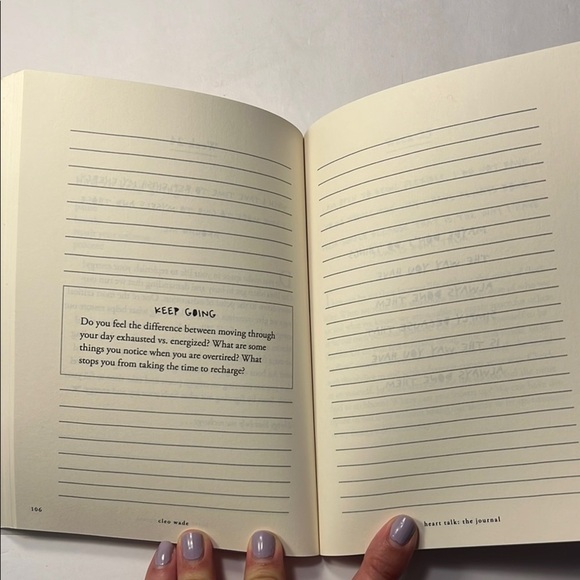 KEEP GOING
Do you feel the difference between moving through
your day exhausted vs. energized? What are some
things you notice when you are overtired? What
stops you from taking the time to recharge?
106
cleo wade
heart talk: the journal